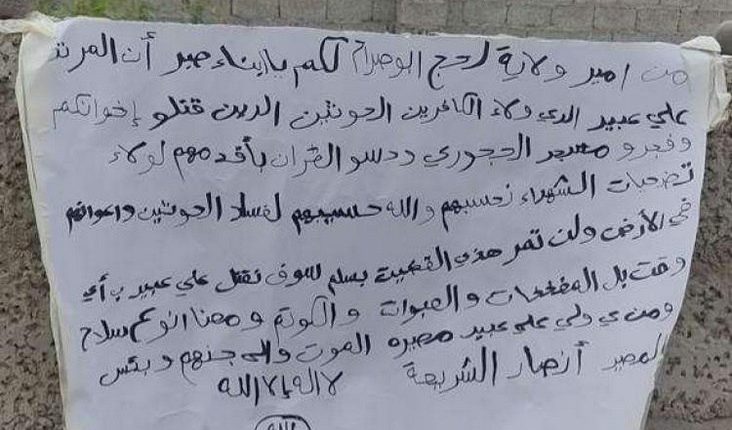 من امير ولاية لحج ابو صرام لكم يا ابناء صبر أن المرتد
علي عبيد الذي ولاء الكافرين الحوثين الذين قتلو إخوانكم
وفجرو مسجد الحجوري ودسو القرآن بأقدمهم لولاء
تضحيات الشهداء نحسبهم والله حسيبهم لفساد الحوثين واعوانهم
في الأرض ولن تمر هذي القضية بسلم لسوف نقتل علي عبيد ب أي
وقت بل المفخخات والعبوات والكوتم ومعنا انوع سلاح
ومن ولي علي عبيد مصيره الموت والى جنهم وبئس
المصير أنصار الشريعة لا اله إلا الله
الله